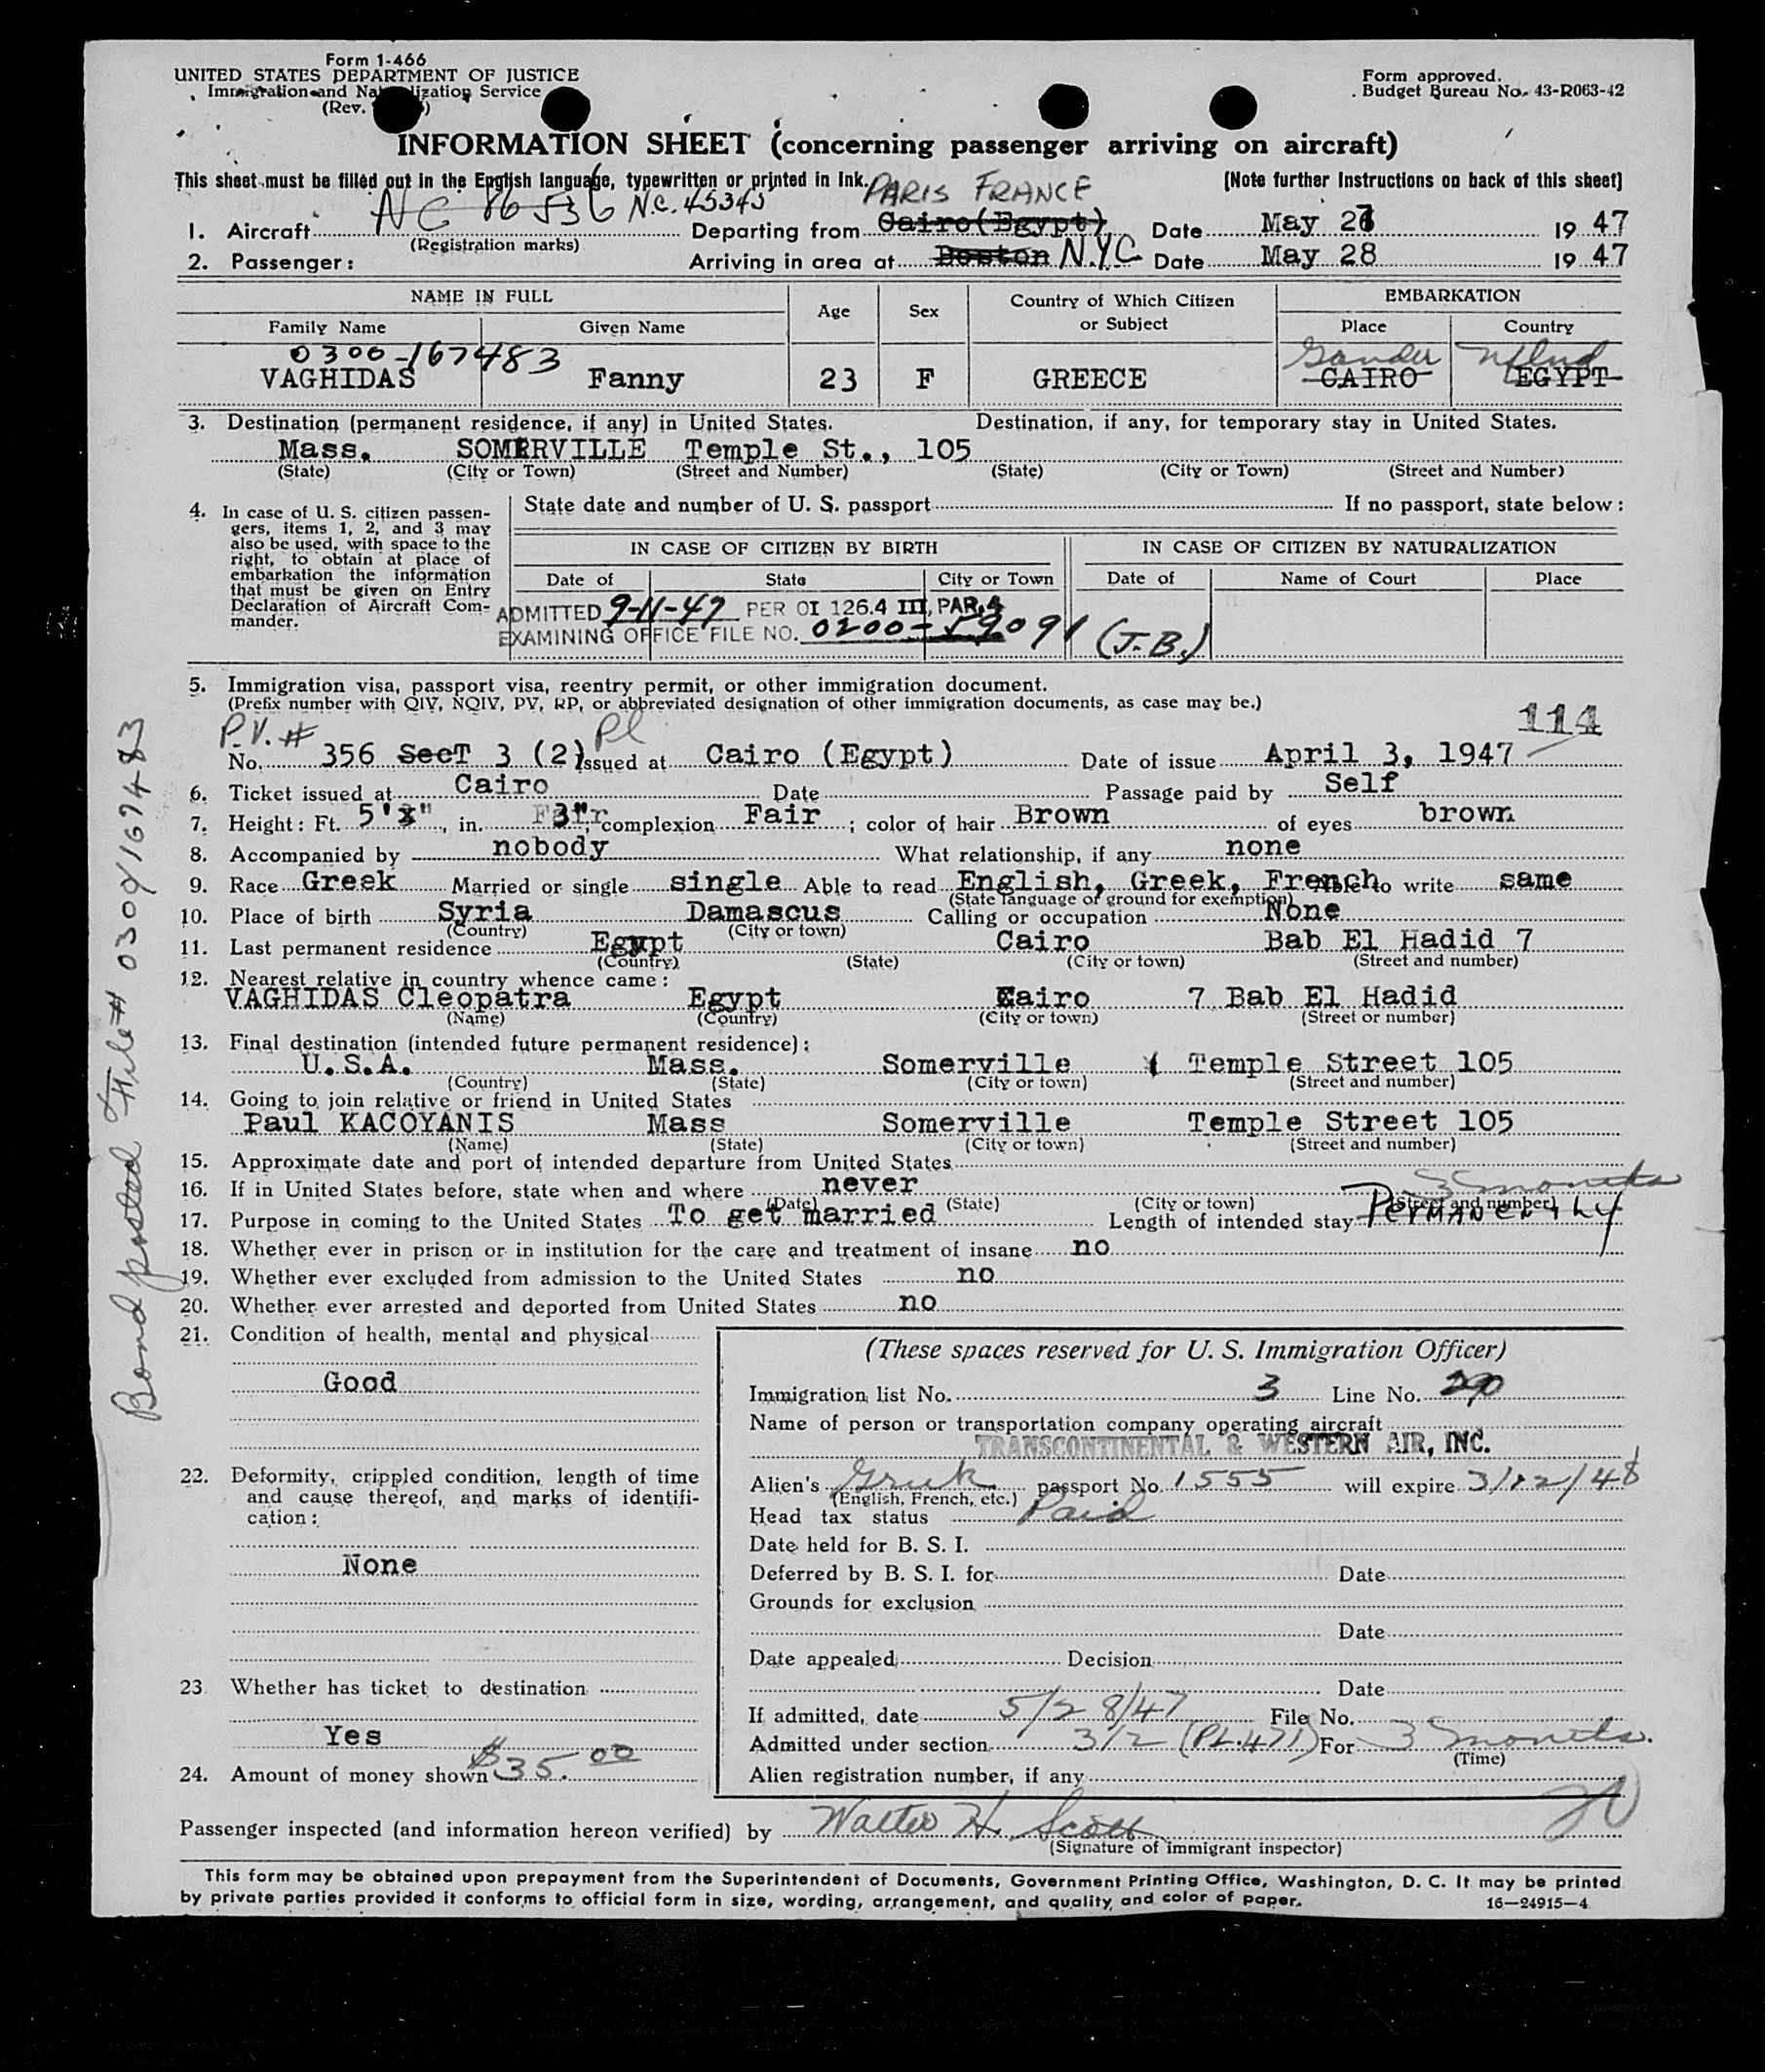 Form 1-466
UNITED STATES DEPARTMENT OF JUSTICE
Immigration and Naturalization Service
(Rev.
Form approved.
Budget Bureau No. 43-R063-42
INFORMATION SHEET (concerning passenger arriving on aircraft)
This sheet must be filled out in the English language, typewritten or printed in ink. (Note further instructions on back of this sheet)
PARIS FRANCE
1. Aircraft NC 86536 N.C. 45345 Departing from Cairo (Egypt) Date May 27 1947
(Registration marks)
2. Passenger: Arriving in area at Boston N.Y.C. Date May 28 1947
NAME IN FULL Age Sex Country of Which Citizen or Subject EMBARKATION
Family Name Given Name Place Country
0300-167483 Gander Nflnd
VAGHIDAS Fanny 23 F GREECE CAIRO EGYPT
3. Destination (permanent residence, if any) in United States. Destination, if any, for temporary stay in United States.
Mass. SOMERVILLE Temple St., 105
(State) (City or Town) (Street and Number) (State) (City or Town) (Street and Number)
4. In case of U. S. citizen passengers, items 1, 2, and 3 may also be used, with space to the right, to obtain at place of embarkation the information that must be given on Entry Declaration of Aircraft Commander.
State date and number of U. S. passport If no passport, state below:
IN CASE OF CITIZEN BY BIRTH IN CASE OF CITIZEN BY NATURALIZATION
Date of State City or Town Date of Name of Court Place
ADMITTED 9-11-47 PER OI 126.4 III, PAR. 4
EXAMINING OFFICE FILE NO. 0200-59091 (J.B.)
5. Immigration visa, passport visa, reentry permit, or other immigration document.
(Prefix number with QIV, NQIV, PV, RP, or abbreviated designation of other immigration documents, as case may be.)
114
P.V. # Pl
No. 356 SecT 3 (2) Issued at Cairo (Egypt) Date of issue April 3, 1947
6. Ticket issued at Cairo Date Passage paid by Self
7. Height: Ft. 5' in. 3" complexion Fair ; color of hair Brown of eyes brown
8. Accompanied by nobody What relationship, if any none
9. Race Greek Married or single single Able to read English, Greek, French Able to write same
(State language or ground for exemption)
10. Place of birth Syria Damascus Calling or occupation None
(Country) (City or town)
11. Last permanent residence Egypt Cairo Bab El Hadid 7
(Country) (State) (City or town) (Street and number)
12. Nearest relative in country whence came:
VAGHIDAS Cleopatra Egypt Cairo 7 Bab El Hadid
(Name) (Country) (City or town) (Street or number)
13. Final destination (intended future permanent residence):
U.S.A. Mass. Somerville Temple Street 105
(Country) (State) (City or town) (Street and number)
14. Going to join relative or friend in United States
Paul KACOYANIS Mass Somerville Temple Street 105
(Name) (State) (City or town) (Street and number)
15. Approximate date and port of intended departure from United States
16. If in United States before, state when and where never
(Date) (State) (City or town) (Street and number)
3 months
17. Purpose in coming to the United States To get married Length of intended stay PERMANENTLY
18. Whether ever in prison or in institution for the care and treatment of insane no
19. Whether ever excluded from admission to the United States no
20. Whether ever arrested and deported from United States no
21. Condition of health, mental and physical
Good
22. Deformity, crippled condition, length of time and cause thereof, and marks of identification:
None
23. Whether has ticket to destination
Yes
24. Amount of money shown $35.00
(These spaces reserved for U. S. Immigration Officer)
Immigration list No. 3 Line No.
Name of person or transportation company operating aircraft
TRANSCONTINENTAL & WESTERN AIR, INC.
Alien's Greek passport No. 1555 will expire 3/12/48
(English, French, etc.)
Head tax status Paid
Date held for B. S. I.
Deferred by B. S. I. for Date
Grounds for exclusion
Date
Date appealed Decision
Date
If admitted, date 5/28/47 File No.
Admitted under section 3/2 (PL.471) For 3 months.
(Time)
Alien registration number, if any
Passenger inspected (and information hereon verified) by Walter H. Scott
(Signature of immigrant inspector)
This form may be obtained upon prepayment from the Superintendent of Documents, Government Printing Office, Washington, D. C. It may be printed
by private parties provided it conforms to official form in size, wording, arrangement, and quality and color of paper. 16—24915-4
Bond posted File # 0300/167483